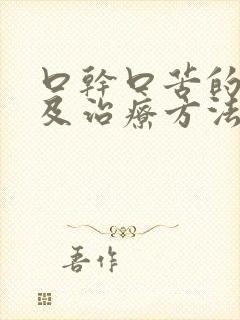 口幹口苦的
及治療方法
吾作